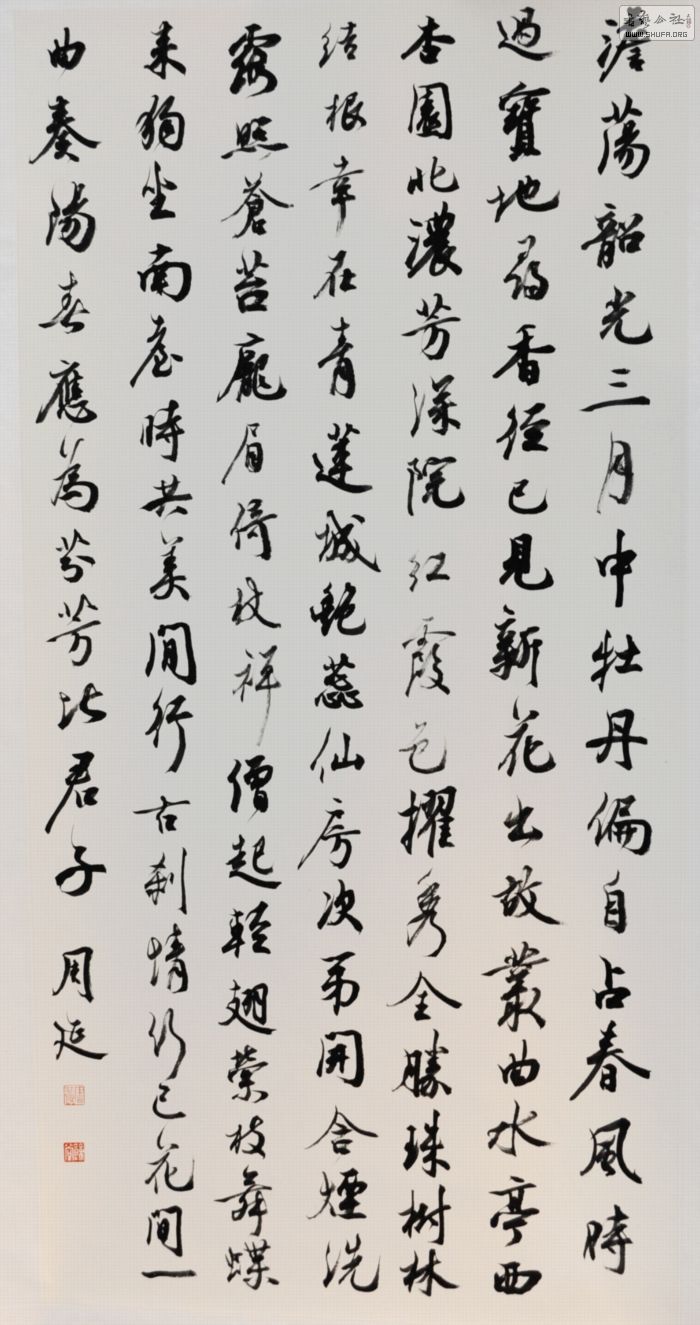 澹蕩韶光三月中牡丹偏自占春風時
過寶地尋香徑已見新花出故叢曲水亭西
杏園北濃芳深院紅霞色擢秀全勝珠樹林
結根幸在青蓮城艷蕊仙房次第開含煙洗
露照蒼苔龐眉倚杖祥僧起輕翅縈枝舞蝶
来獨坐南臺時共美閒行古刹情何已花間一
曲奏陽春應為芬芳比君子 周延
書藝公社
WWW.SHUFA.ORG